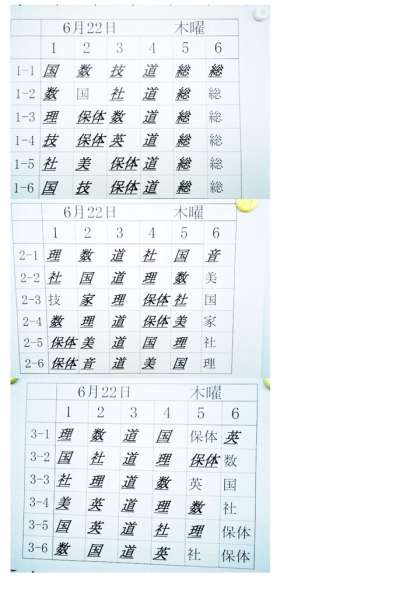 6月22日 木曜
1 2 3 4 5 6
1-1 国 数 技 道 総 総
1-2 数 国 社 道 総 総
1-3 理 保体 数 道 総 総
1-4 技 保体 英 道 総 総
1-5 社 美 保体 道 総 総
1-6 国 技 保体 道 総 総
6月22日 木曜
1 2 3 4 5 6
2-1 理 数 道 社 国 音
2-2 社 国 道 理 数 美
2-3 技 家 理 保体 社 国
2-4 数 理 道 保体 美 家
2-5 保体 美 道 国 理 社
2-6 保体 音 道 美 国 理
6月22日 木曜
1 2 3 4 5 6
3-1 理 数 道 国 保体 英
3-2 国 社 道 理 保体 数
3-3 社 理 道 数 英 国
3-4 美 英 道 理 数 社
3-5 国 英 道 社 理 保体
3-6 数 国 道 英 社 保体